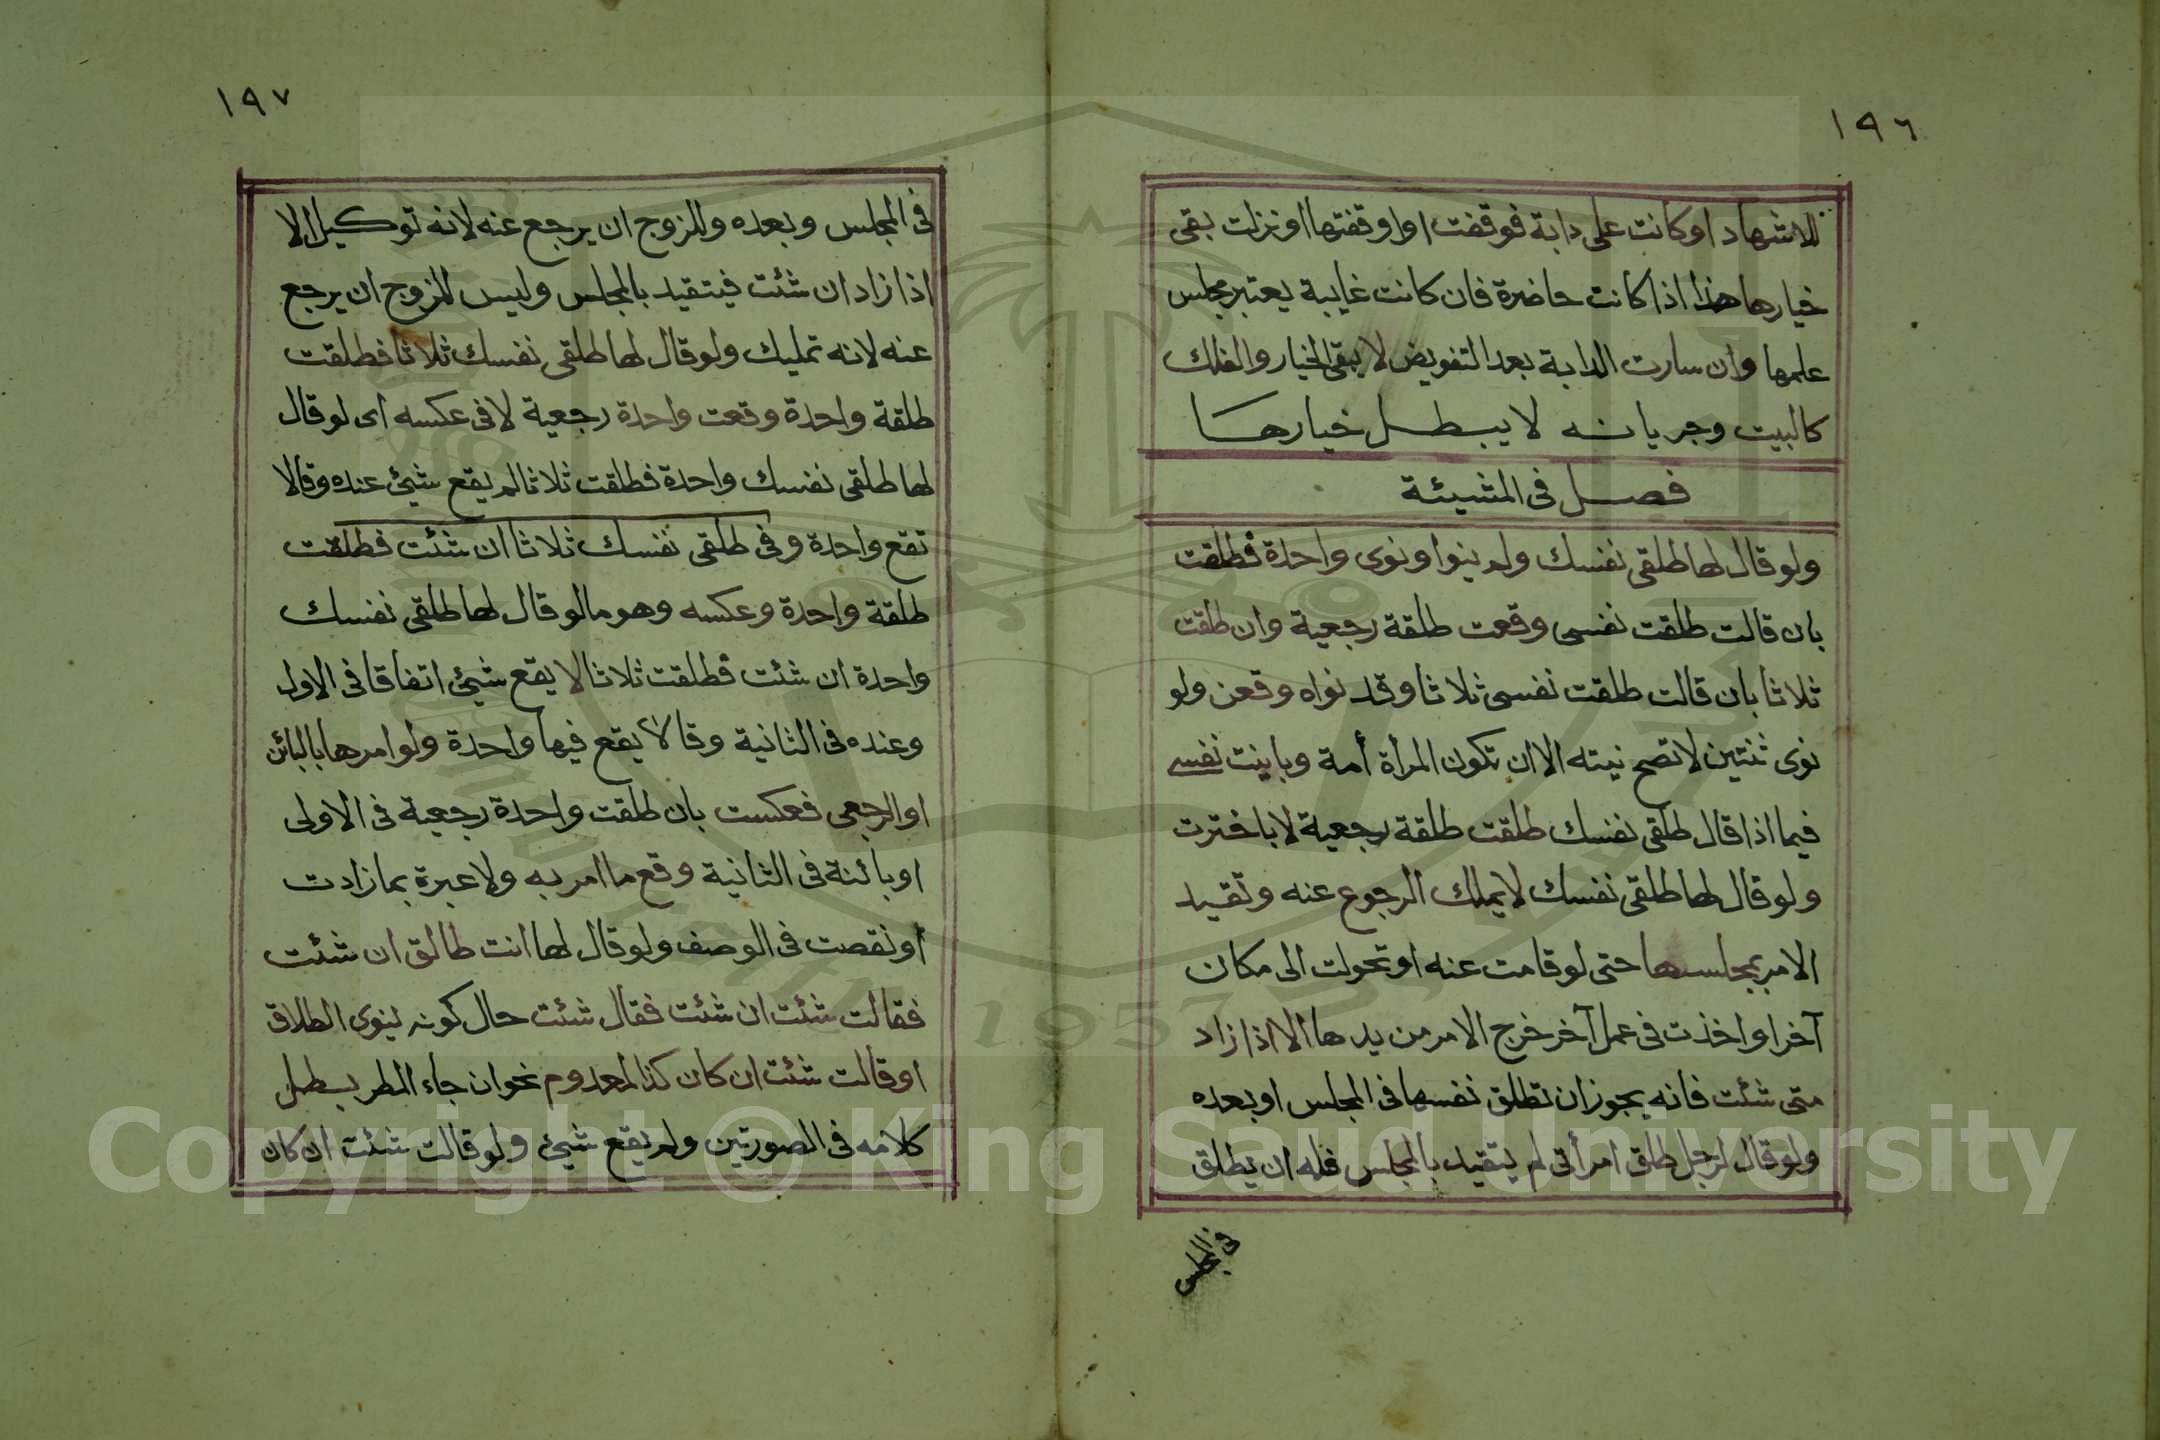 ١٩٦
للاشهاد او كانت على دابة فوقفت او اوقفتها او نزلت بقى
خيارها هذا اذا كانت حاضرة فان كانت غايبة يعتبر مجلس
علمها وان سارت الدابة بعد التفويض لا يبقى الخيار والفلك
كالبيت وجريانه لا يبطل خيارها
فصل فى المشيئة
ولو قال لها طلقى نفسك ولم ينوا ونوى واحدة فطلقت
بان قالت طلقت نفسى وقعت طلقة رجعية وان طلقت
ثلاثا بان قالت طلقت نفسى ثلاثا وقد نواه وقعن ولو
نوى ثنتين لا تصح نيته الا ان تكون المرأة أمة وبابنت نفسى
فيما اذا قال طلقى نفسك طلقت طلقة رجعية لا باخترت
ولو قال لها طلقى نفسك لا يملك الرجوع عنه وتقيد
الامر بمجلسها حتى لو قامت عنه او تحولت الى مكان
آخر او اخذت فى عمل آخر خرج الامر من يدها الا اذا زاد
متى شئت فانه يجوز ان تطلق نفسها فى المجلس او بعده
ولو قال لرجل طلق امرأتى لم يتقيد بالمجلس فله ان يطلق
فى المجلس
١٩٧
فى المجلس وبعده وللزوج ان يرجع عنه لانه توكيل الا
اذا زاد ان شئت فيتقيد بالمجلس وليس للزوج ان يرجع
عنه لانه تمليك ولو قال لها طلقى نفسك ثلاثا فطلقت
طلقة واحدة وقعت واحدة رجعية لا فى عكسه اى لو قال
لها طلقى نفسك واحدة فطلقت ثلاثا لم يقع شيئ عنده وقالا
تقع واحدة وفى طلقى نفسك ثلاثا ان شئت فطلقت
طلقة واحدة وعكسه وهو ما لو قال لها طلقى نفسك
واحدة ان شئت فطلقت ثلاثا لا يقع شيئ اتفاقا فى الاول
وعنده فى الثانية وقالا يقع فيها واحدة ولو امرها بالبائن
او الرجعى فعكست بان طلقت واحدة رجعية فى الاولى
او بائنة فى الثانية وقع ما امر به ولا عبرة بما زادت
او نقصت فى الوصف ولو قال لها انت طالق ان شئت
فقالت شئت ان شئت فقال شئت حال كونه ينوى الطلاق
او قالت شئت ان كان كذا لمعدوم نحو ان جاء المطر بطل
كلامه فى الصورتين ولم يقع شيئ ولو قالت شئت ان كان
1957
Copyright © King Saud University